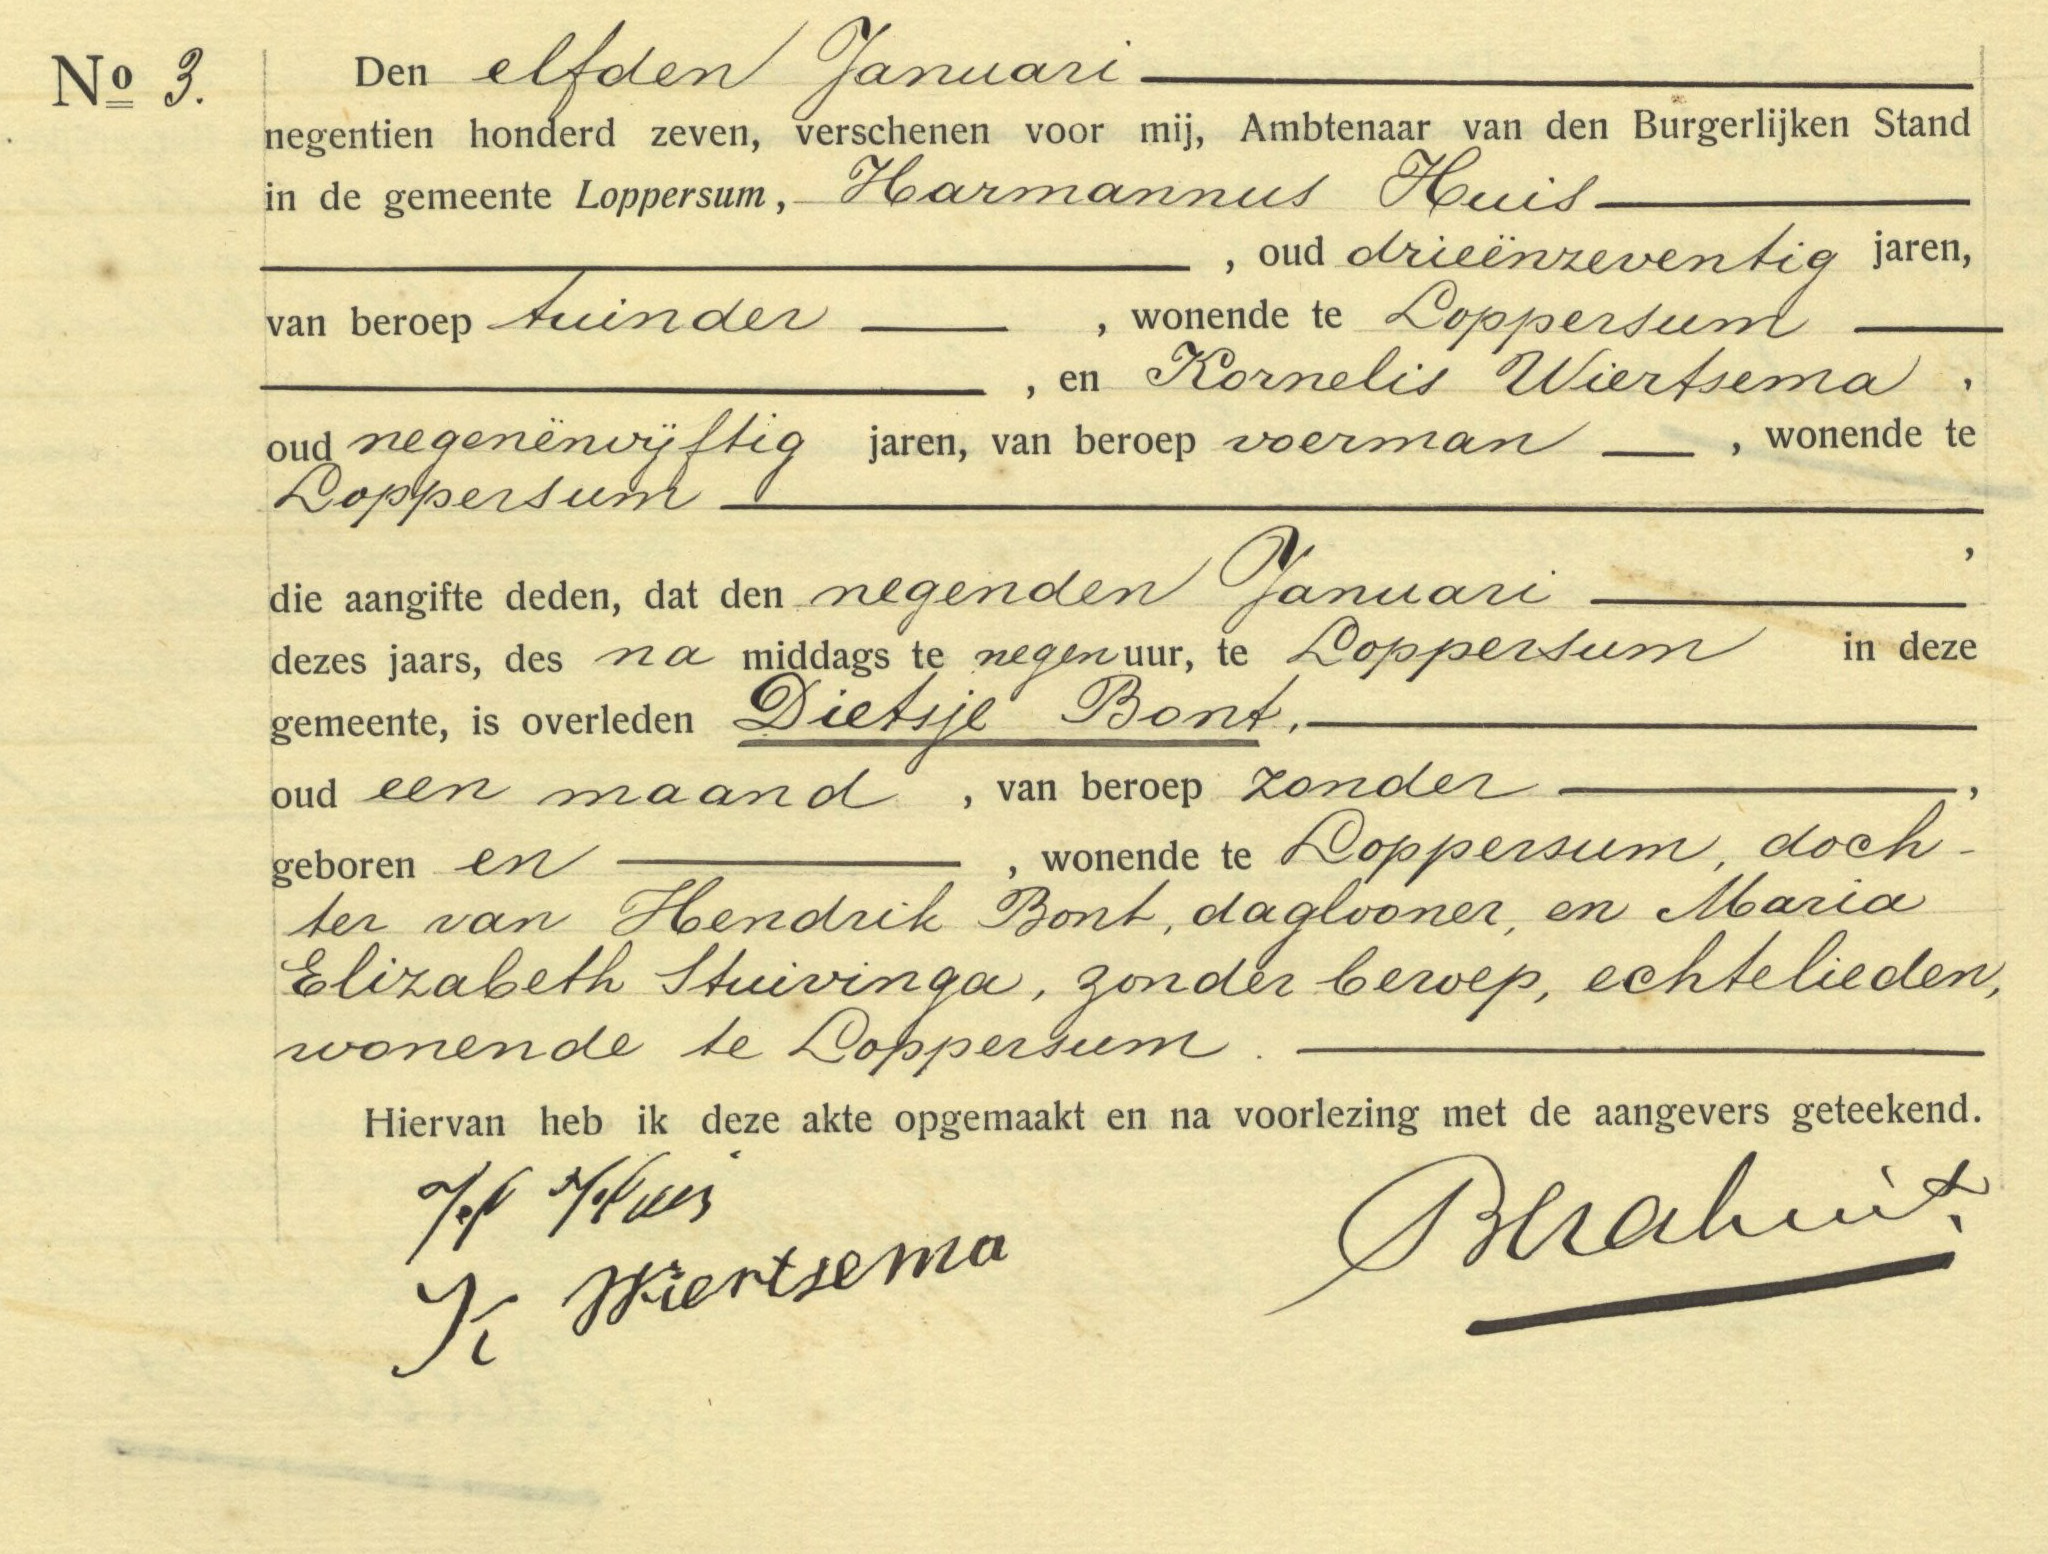 No 3.
Den elfden Januari
negentien honderd zeven, verschenen voor mij, Ambtenaar van den Burgerlijken Stand
in de gemeente Loppersum, Harmannus Huis
, oud drieënzeventig jaren,
van beroep tuinder , wonende te Loppersum
, en Kornelis Wiertsema ,
oud negenënvijftig jaren, van beroep voerman , wonende te
Loppersum
,
die aangifte deden, dat den negenden Januari
dezes jaars, des na middags te negen uur, te Loppersum in deze
gemeente, is overleden Dietsje Bont,
oud een maand , van beroep zonder ,
geboren en , wonende te Loppersum, doch-
ter van Hendrik Bont, daglooner, en Maria
Elizabeth Stuivinga, zonder beroep, echtelieden,
wonende te Loppersum.
Hiervan heb ik deze akte opgemaakt en na voorlezing met de aangevers geteekend.
H Huis
K Wiertsema